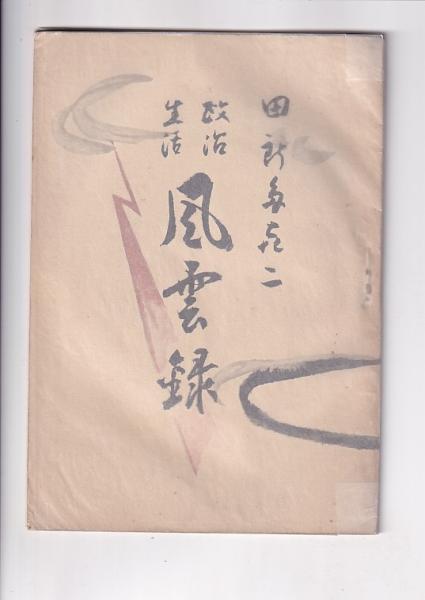 田所多喜二
政治
生活
風雲録